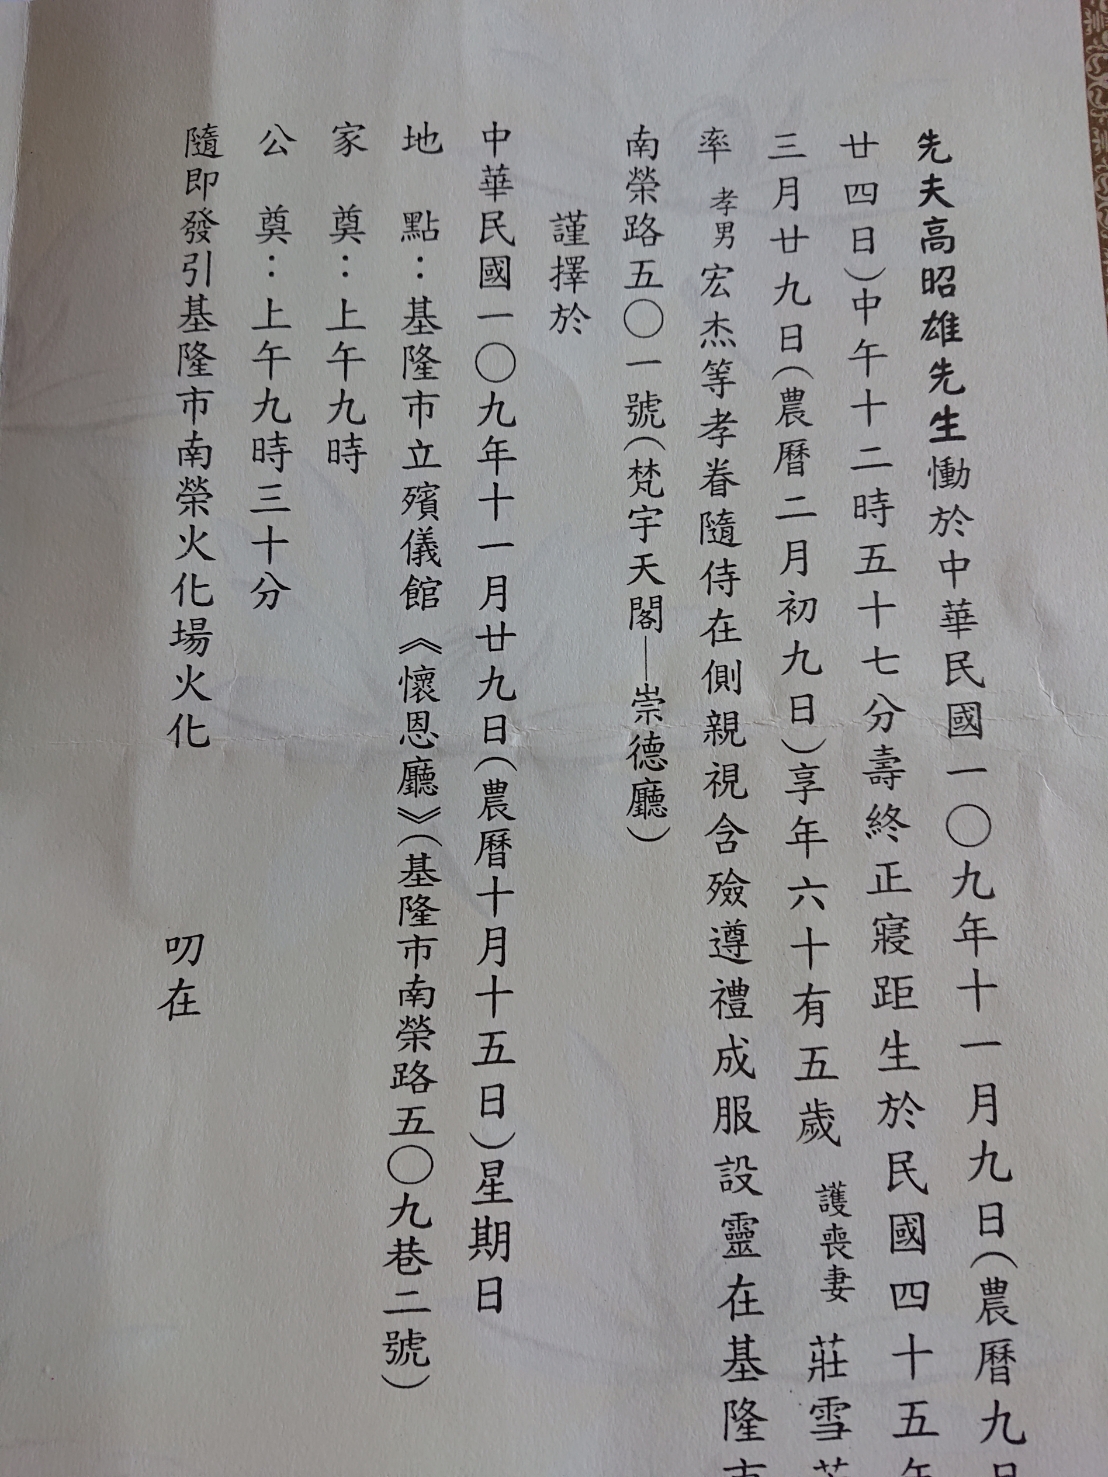 先夫高昭雄先生慟於中華民國一〇九年十一月九日(農曆九
廿四日)中午十二時五十七分壽終正寢距生於民國四十五年
三月廿九日(農曆二月初九日)享年六十有五歲 護喪妻 莊雪
率 孝男 宏杰等孝眷隨侍在側親視含殮遵禮成服設靈在基隆市
南榮路五〇一號(梵宇天閣—崇德廳)
謹擇於
中華民國一〇九年十一月廿九日(農曆十月十五日)星期日
地 點:基隆市立殯儀館《懷恩廳》(基隆市南榮路五〇九巷二號)
家 奠:上午九時
公 奠:上午九時三十分
隨即發引基隆市南榮火化場火化
叨在